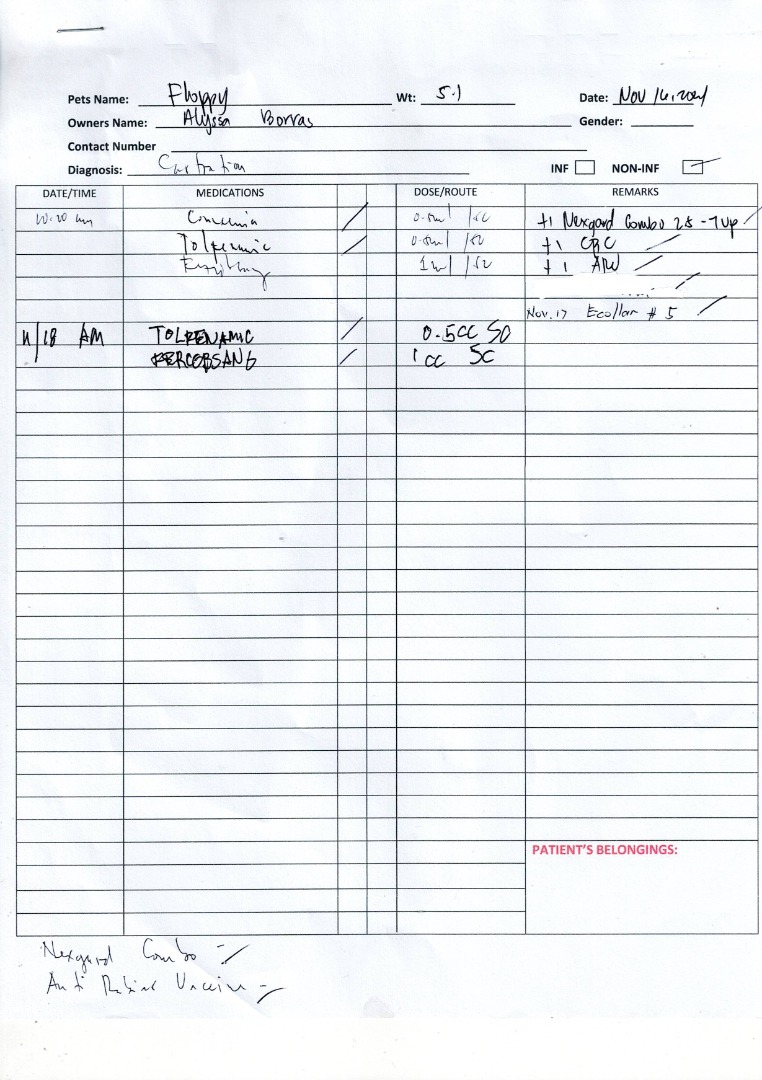 Pets Name: Floppy Wt: 5.1 Date: Nov 16, 2024
Owners Name: Alyssa Borras Gender:
Contact Number
Diagnosis: Castration INF NON-INF
DATE/TIME MEDICATIONS DOSE/ROUTE REMARKS
10:20 am /SC +1 Nexgard Combo 2.5 - 7
/ SC +1 CBC
1ml / SC +1
Nov. 17 Ecollar # 5
11/18 AM TOLFENAMIC 0.5CC SC
1 CC SC
PATIENT'S BELONGINGS:
Nexgard Combo -
Anti Rabies Vaccine -